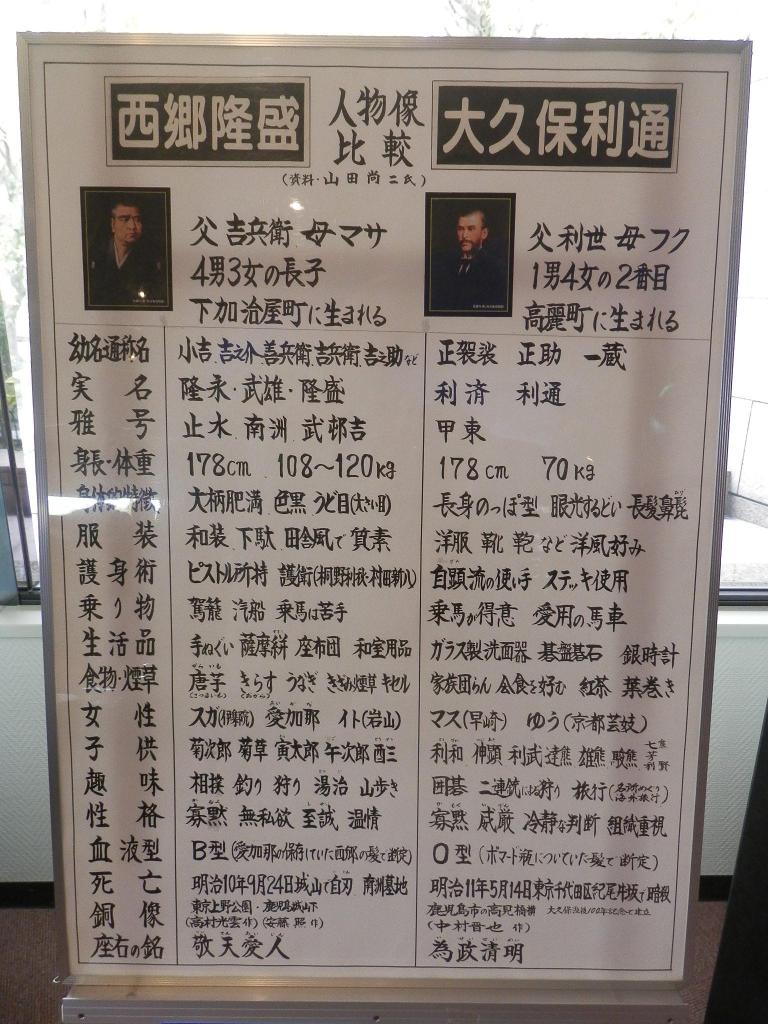 西郷隆盛 人物像比較 大久保利通
(資料・山田尚二氏)
父 吉兵衛 母マサ
4男3女の長子
下加治屋町に生まれる
父 利世 母 フク
1男4女の2番目
高麗町に生まれる
幼名通称名 小吉.吉之介.善兵衛.吉兵衛.吉之助など 正袈裟 正助 一蔵
実名 隆永・武雄・隆盛 利済 利通
雅号 止水.南洲 武邨吉 甲東
身長・体重 178cm 108〜120kg 178cm 70kg
身体的特徴 大柄肥満 色黒 うど目(太きい目) 長身のっぽ型 眼光するどい 長髪鼻髭
服装 和装.下駄 田舎風で質素 洋服 靴 鞄など洋風好み
護身術 ピストル所持 護衛(桐野利秋・村田新八) 自顕流の使い手 ステッキ使用
乗り物 駕籠 汽船 乗馬は苦手 乗馬が得意 愛用の馬車
生活品 手ぬぐい 薩摩絣 座布団 和室用品 ガラス製洗面器 碁盤碁石 銀時計
食物・煙草 唐芋 きらす うなぎ きざみ煙草 キセル 家族団らん 会食を好む 紅茶 葉巻き
女性 スガ(伊集院) 愛加那 イト(岩山) マス(早崎) ゆう(京都芸妓)
子供 菊次郎 菊草 寅太郎 午次郎 酉三 利和 伸顕 利武 達熊 雄熊 駿熊 七熊 芳野
趣味 相撲 釣り 狩り 湯治 山歩き 囲碁 二連銃による狩り 旅行(名所めぐり 海外旅行)
性格 寡黙 無私欲 至誠 温情 寡黙 威厳 冷静な判断 組織重視
血液型 B型(愛加那の保存していた西郷の髪で断定) O型(ポマード瓶についていた髪で断定)
死亡 明治10年9月24日城山で自刃 南洲墓地 明治11年5月14日東京千代田区紀尾井坂で暗殺
銅像 東京上野公園・鹿児島城山下 鹿児島市の高見橋横 大久保没後100年記念で建立
(高村光雲 作) (安藤 照 作) (中村晋也 作)
座右の銘 敬天愛人 為政清明